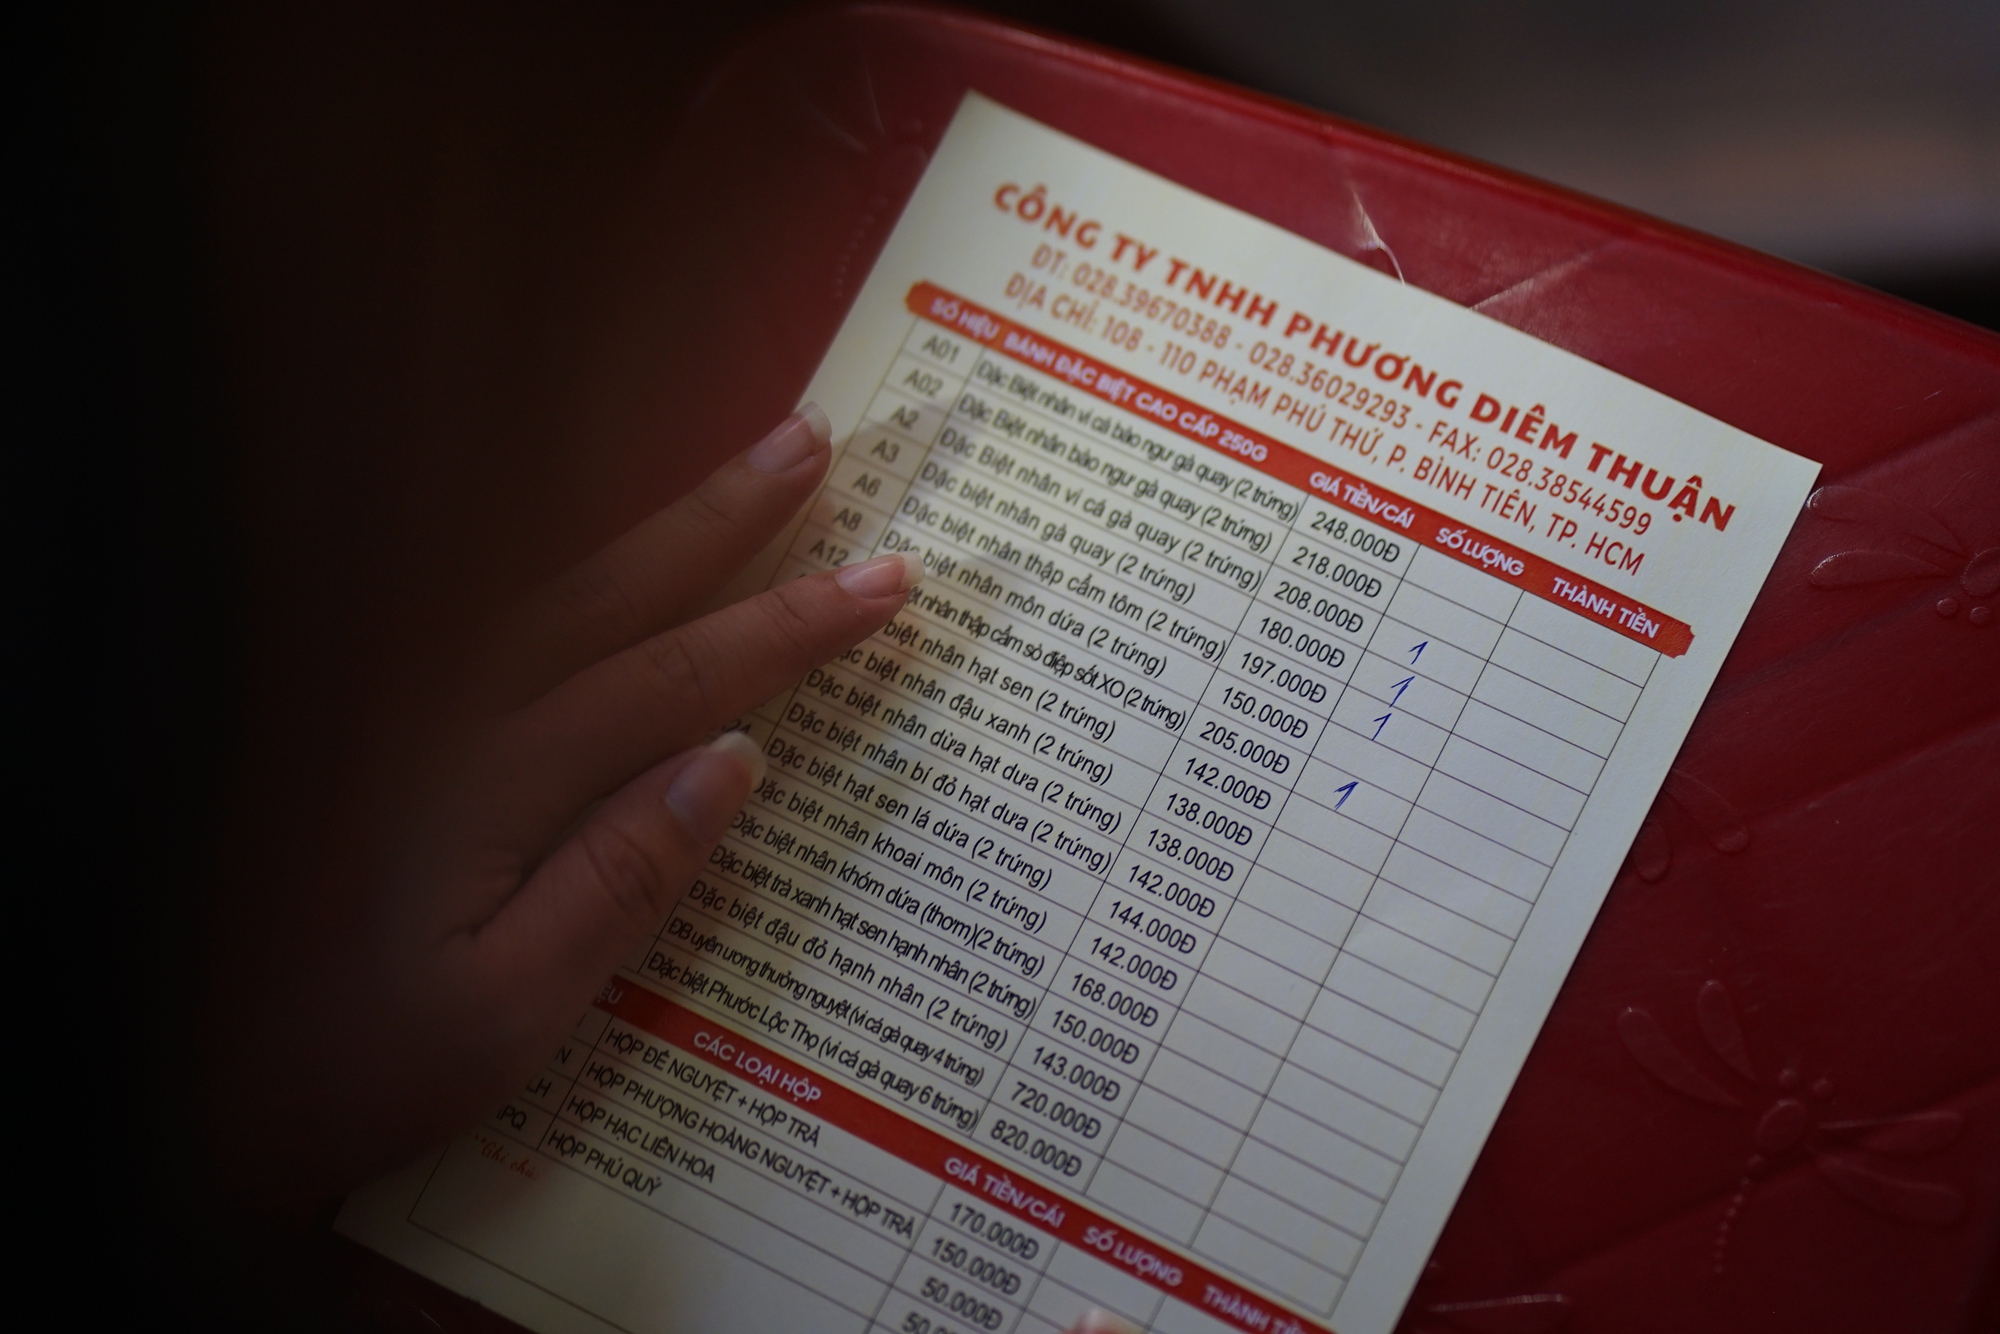 CÔNG TY TNHH PHƯƠNG DIÊM THUẬN
ĐT: 028.39670388 - 028.36029293 - FAX: 028.38544599
ĐỊA CHỈ: 108 - 110 PHẠM PHÚ THỨ, P. BÌNH TIÊN, TP. HCM
SỐ HIỆU BÁNH ĐẶC BIỆT CAO CẤP 250G GIÁ TIỀN/CÁI SỐ LƯỢNG THÀNH TIỀN
A01 Đặc Biệt nhân vi cá bào ngư gà quay (2 trứng) 248.000Đ
A02 Đặc Biệt nhân bào ngư gà quay (2 trứng) 218.000Đ
A2 Đặc Biệt nhân vi cá gà quay (2 trứng) 208.000Đ 1
A3 Đặc biệt nhân gà quay (2 trứng) 180.000Đ 1
A6 Đặc biệt nhân thập cẩm tôm (2 trứng) 197.000Đ 1
A8 Đặc biệt nhân môn dứa (2 trứng) 150.000Đ
A12 nhân thập cẩm sò điệp sốt XO (2 trứng) 205.000Đ 1
biệt nhân hạt sen (2 trứng) 142.000Đ
biệt nhân đậu xanh (2 trứng) 138.000Đ
Đặc biệt nhân dừa hạt dưa (2 trứng) 138.000Đ
Đặc biệt nhân bí đỏ hạt dưa (2 trứng) 142.000Đ
Đặc biệt hạt sen lá dứa (2 trứng) 144.000Đ
Đặc biệt nhân khoai môn (2 trứng) 142.000Đ
Đặc biệt nhân khóm dứa (thơm)(2 trứng) 168.000Đ
Đặc biệt trà xanh hạt sen hạnh nhân (2 trứng) 150.000Đ
Đặc biệt đậu đỏ hạnh nhân (2 trứng) 143.000Đ
ĐB uyên ương thưởng nguyệt (vi cá gà quay 4 trứng) 720.000Đ
Đặc biệt Phước Lộc Thọ (vi cá gà quay 6 trứng) 820.000Đ
CÁC LOẠI HỘP GIÁ TIỀN/CÁI SỐ LƯỢNG THÀNH TIỀN
HỘP ĐẾ NGUYỆT + HỘP TRÀ 170.000Đ
HỘP PHƯỢNG HOÀNG NGUYỆT + HỘP TRÀ 150.000Đ
HỘP HẠC LIÊN HOA 50.000Đ
PQ HỘP PHÚ QUÝ
Ghi chú: